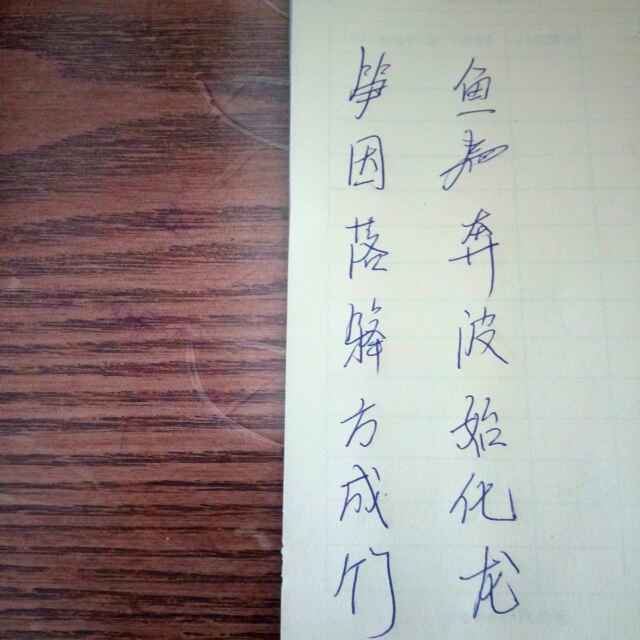 笋因落箨方成竹
鱼为奔波始化龙